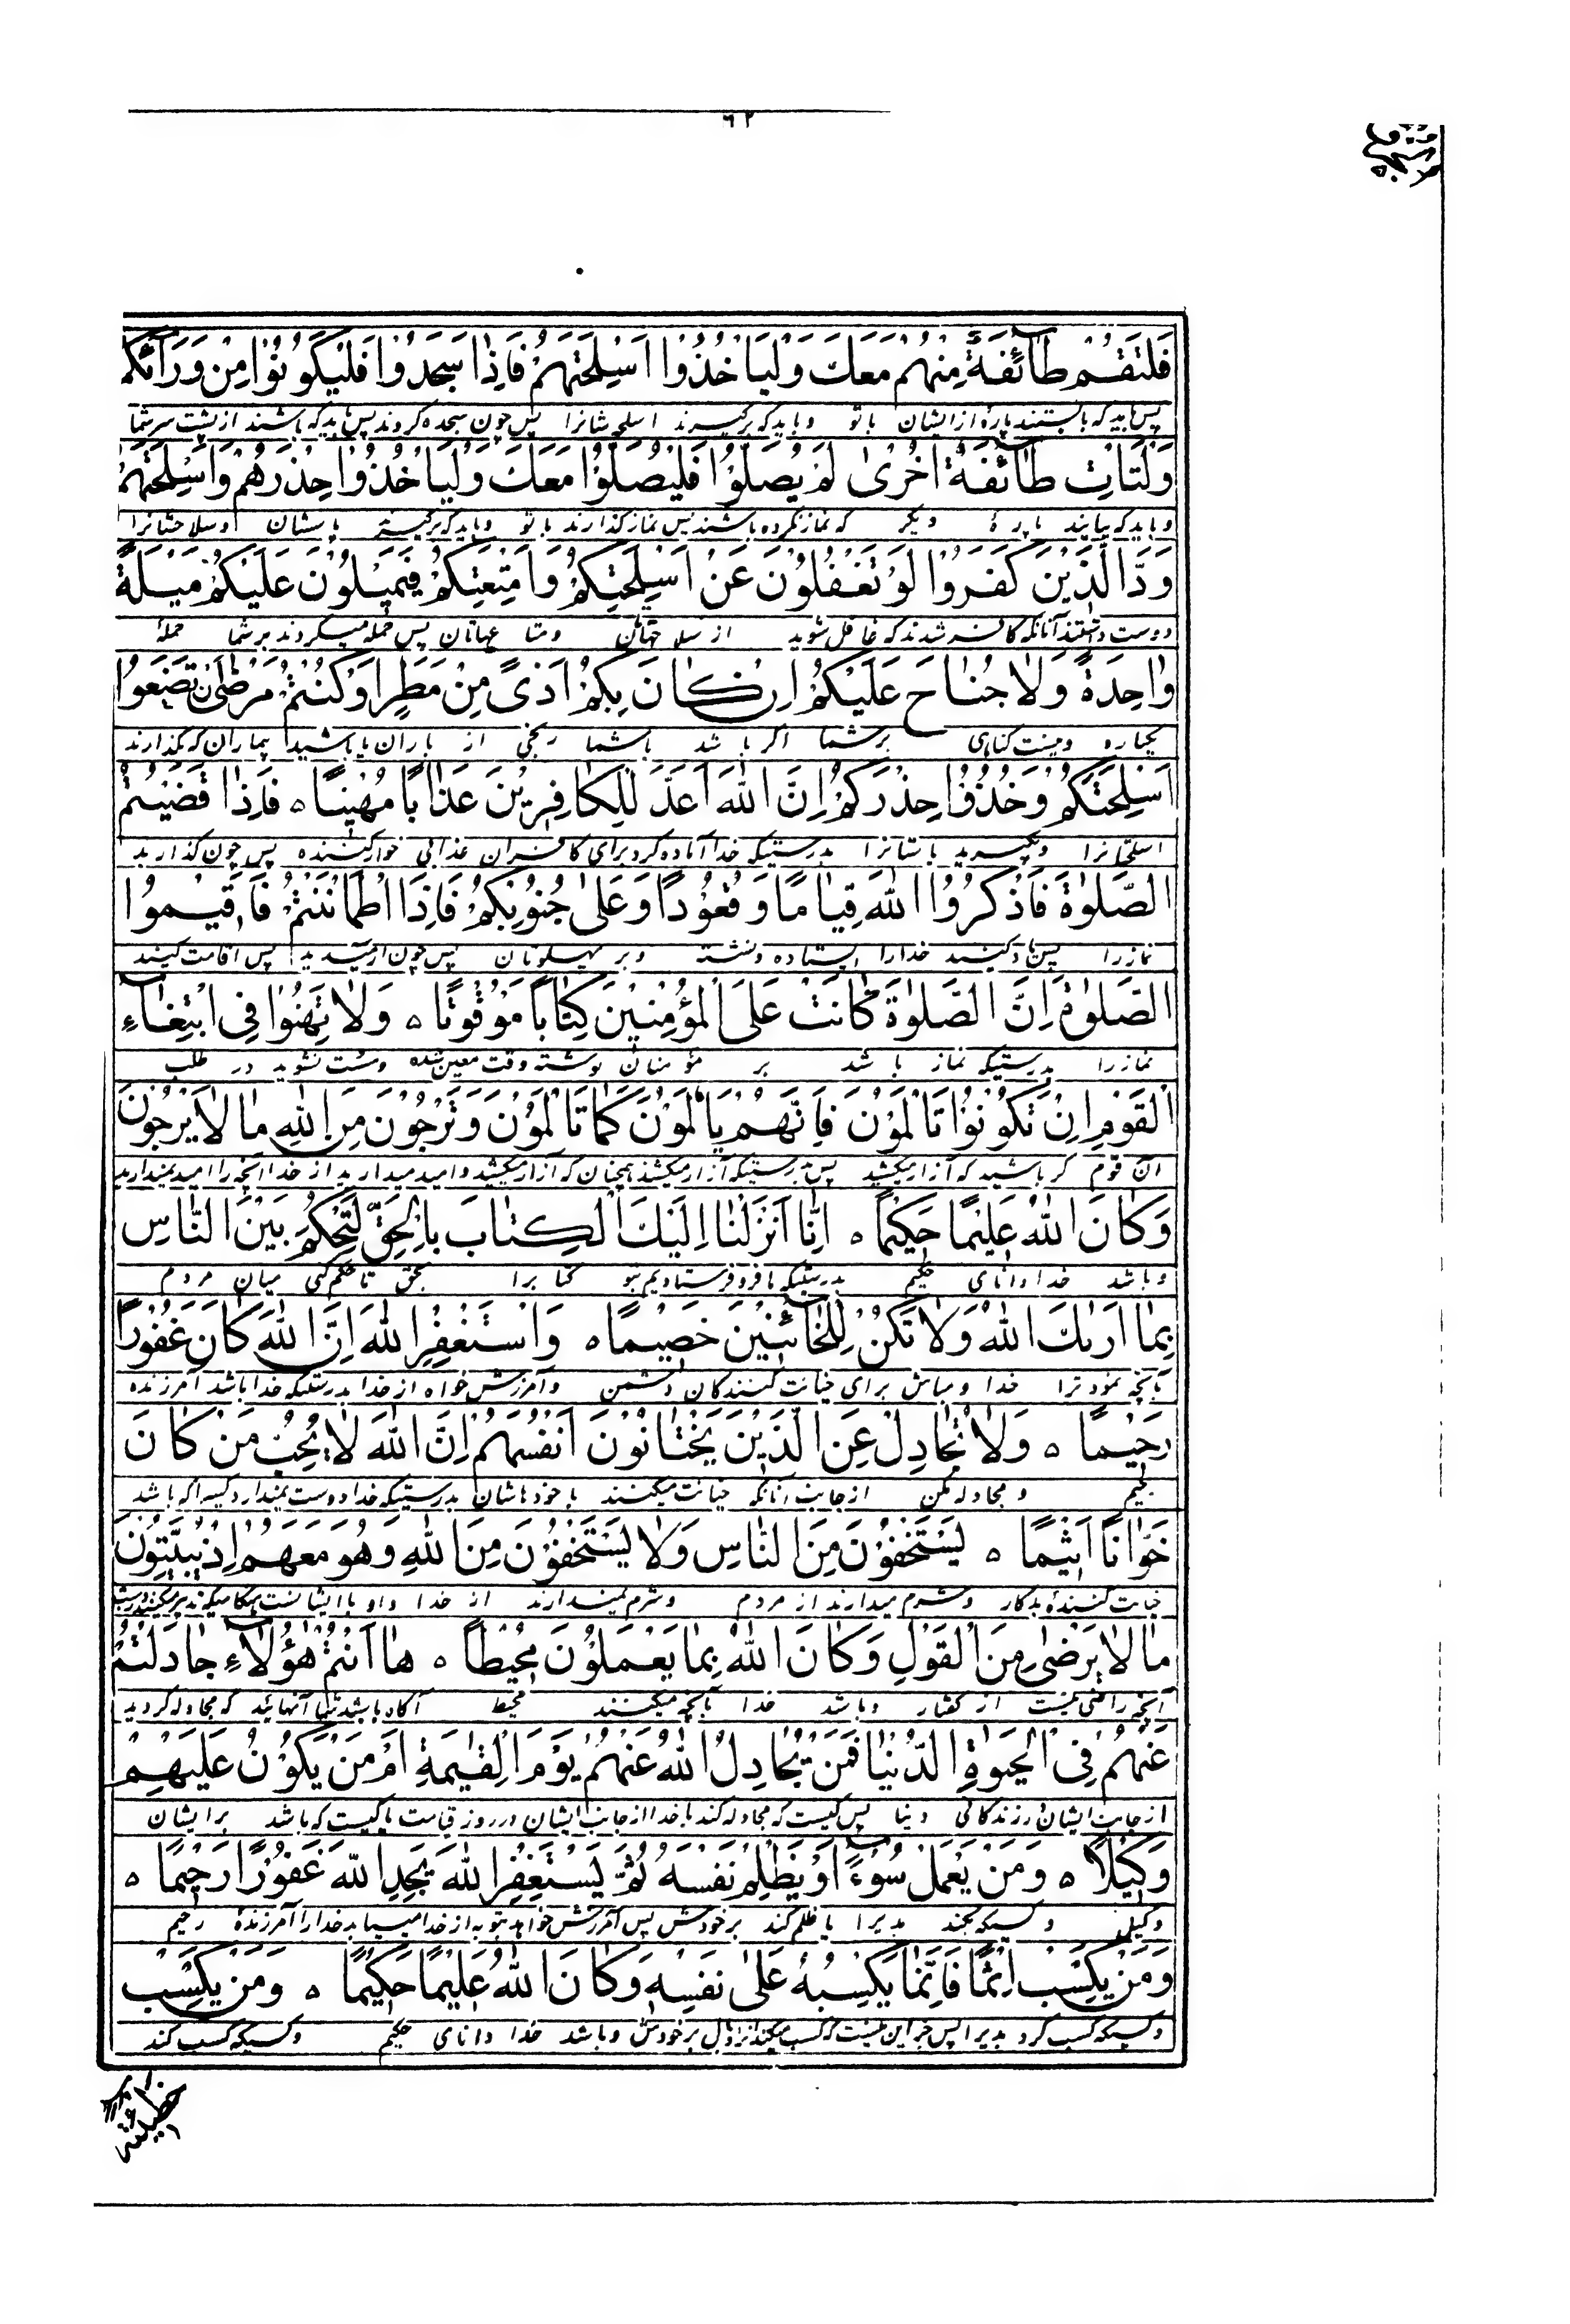 ٦٢
فَلْتَقُمْ طَآئِفَةٌ مِنْهُمْ مَعَكَ وَلْيَاْخُذُوا اَسْلِحَتَهُمْ فَاِذٰا سَجَدُوا فَلْيَكُونُوا مِنْ وَرَآئِكُمْ
پس باید که بایستند پارهٔ از ایشان با تو و باید که برگیرند اسلحه‌شانرا پس چون سجده کردند پس باید که باشند از پشت سر شما
وَلْتَاْتِ طَآئِفَةٌ اُخْرىٰ لَمْ يُصَلُّوا فَلْيُصَلُّوا مَعَكَ وَلْيَاْخُذُوا حِذْرَهُمْ وَاَسْلِحَتَهُمْ
و باید که بیایند پارهٔ دیگر که نماز نکرده باشند پس نماز گذارند با تو و باید که برگیرند و سلاحشانرا
وَدَّ الَّذِينَ كَفَرُوا لَوْ تَغْفُلُونَ عَنْ اَسْلِحَتِكُمْ وَاَمْتِعَتِكُمْ فَيَمِيلُونَ عَلَيْكُمْ مَيْلَةً
دوست داشتند آنانکه کافر شدند که غافل شوید از سلاحتان و متاعهاتان پس حمله میکردند بر شما حملهٔ
وٰاحِدَةً وَلٰا جُنٰاحَ عَلَيْكُمْ اِنْ كٰانَ بِكُمْ اَذىً مِنْ مَطَرٍ اَوْ كُنْتُمْ مَرْضىٰ اَنْ تَضَعُوا
یکباره و نیست گناهی بر شما اگر باشد با شما رنجی از باران یا باشید بیماران که بگذارید
اَسْلِحَتَكُمْ وَخُذُوا حِذْرَكُمْ اِنَّ اللّٰهَ اَعَدَّ لِلْكٰافِرِينَ عَذٰاباً مُهِيناً ه فَاِذٰا قَضَيْتُمُ
بدرستیکه خدا آماده کرد برای کافران عذابی خوار کننده پس چون گذارید
الصَّلٰوةَ فَاذْكُرُوا اللّٰهَ قِيٰاماً وَقُعُوداً وَعَلىٰ جُنُوبِكُمْ فَاِذَا اطْمَاْنَنْتُمْ فَاَقِيمُوا
نماز را پس یاد کنید خدا را ایستاده و نشسته و بر پهلوتان پس چون آرمیدید پس اقامت کنید
الصَّلٰوةَ اِنَّ الصَّلٰوةَ كٰانَتْ عَلَى الْمُؤْمِنِينَ كِتٰاباً مَوْقُوتاً ه وَلٰا تَهِنُوا فِى ابْتِغٰاءِ
نماز را بدرستیکه نماز باشد بر مؤمنان نوشته وقت معین شده و سست نشوید در طلب
الْقَوْمِ اِنْ تَكُونُوا تَاْلَمُونَ فَاِنَّهُمْ يَاْلَمُونَ كَمٰا تَاْلَمُونَ وَتَرْجُونَ مِنَ اللّٰهِ مٰا لٰا يَرْجُونَ
آن قوم گر باشید که آزار میکشید پس بدرستیکه آزار میکشند همچنان که آزار میکشید و امید میدارید از خدا آنچه را امید نمیدارند
وَكٰانَ اللّٰهُ عَلِيماً حَكِيماً ه اِنّٰا اَنْزَلْنٰا اِلَيْكَ الْكِتٰابَ بِالْحَقِّ لِتَحْكُمَ بَيْنَ النّٰاسِ
و باشد خدا دانای حکیم بدرستیکه ما فرو فرستادیم بتو کتابرا بحق تا حکم کنی میان مردم
بِمٰا اَرٰىكَ اللّٰهُ وَلٰا تَكُنْ لِلْخٰآئِنِينَ خَصِيماً ه وَاسْتَغْفِرِ اللّٰهَ اِنَّ اللّٰهَ كٰانَ غَفُوراً
بآنچه نمود ترا خدا و مباش برای خیانت کنندگان دشمن و آمرزش خواه از خدا بدرستیکه خدا باشد آمرزنده
رَحِيماً ه وَلٰا تُجٰادِلْ عَنِ الَّذِينَ يَخْتٰانُونَ اَنْفُسَهُمْ اِنَّ اللّٰهَ لٰا يُحِبُّ مَنْ كٰانَ
رحیم و مجادله مکن از جانب آنانکه خیانت میکنند با خودهاشان بدرستیکه خدا دوست نمیدارد کسیرا که باشد
خَوّٰاناً اَثِيماً ه يَسْتَخْفُونَ مِنَ النّٰاسِ وَلٰا يَسْتَخْفُونَ مِنَ اللّٰهِ وَهُوَ مَعَهُمْ اِذْ يُبَيِّتُونَ
خیانت کنندهٔ بدکار و شرم میدارند از مردم و شرم نمیدارند از خدا و او با ایشانست
مٰا لٰا يَرْضىٰ مِنَ الْقَوْلِ وَكٰانَ اللّٰهُ بِمٰا يَعْمَلُونَ مُحِيطاً ه هٰا اَنْتُمْ هٰؤُلٰاءِ جٰادَلْتُمْ
آنچه راضی نیست از گفتار و باشد خدا بآنچه میکنند محیط آگاه باشید شما آنهائید که مجادله کردید
عَنْهُمْ فِى الْحَيٰوةِ الدُّنْيٰا فَمَنْ يُجٰادِلُ اللّٰهَ عَنْهُمْ يَوْمَ الْقِيٰمَةِ اَمْ مَنْ يَكُونُ عَلَيْهِمْ
از جانب ایشان در زندگانی دنیا پس کیست که مجادله کند با خدا از جانب ایشان در روز قیامت یا کیست که باشد بر ایشان
وَكِيلاً ه وَمَنْ يَعْمَلْ سُوءً اَوْ يَظْلِمْ نَفْسَهُ ثُمَّ يَسْتَغْفِرِ اللّٰهَ يَجِدِ اللّٰهَ غَفُوراً رَحِيماً ه
وکیل و کسیکه بکند بدیرا یا ظلم کند بر خودش پس آمرزش خواهد بتوبه از خدا مییابد خدا را آمرزندهٔ رحیم
وَمَنْ يَكْسِبْ اِثْماً فَاِنَّمٰا يَكْسِبُهُ عَلىٰ نَفْسِهِ وَكٰانَ اللّٰهُ عَلِيماً حَكِيماً ه وَمَنْ يَكْسِبْ
و کسیکه کسب کرد بدیرا پس جز این نیست که کسب میکند بر خودش و باشد خدا دانای حکیم و کسیکه کسب کند
خطیئة